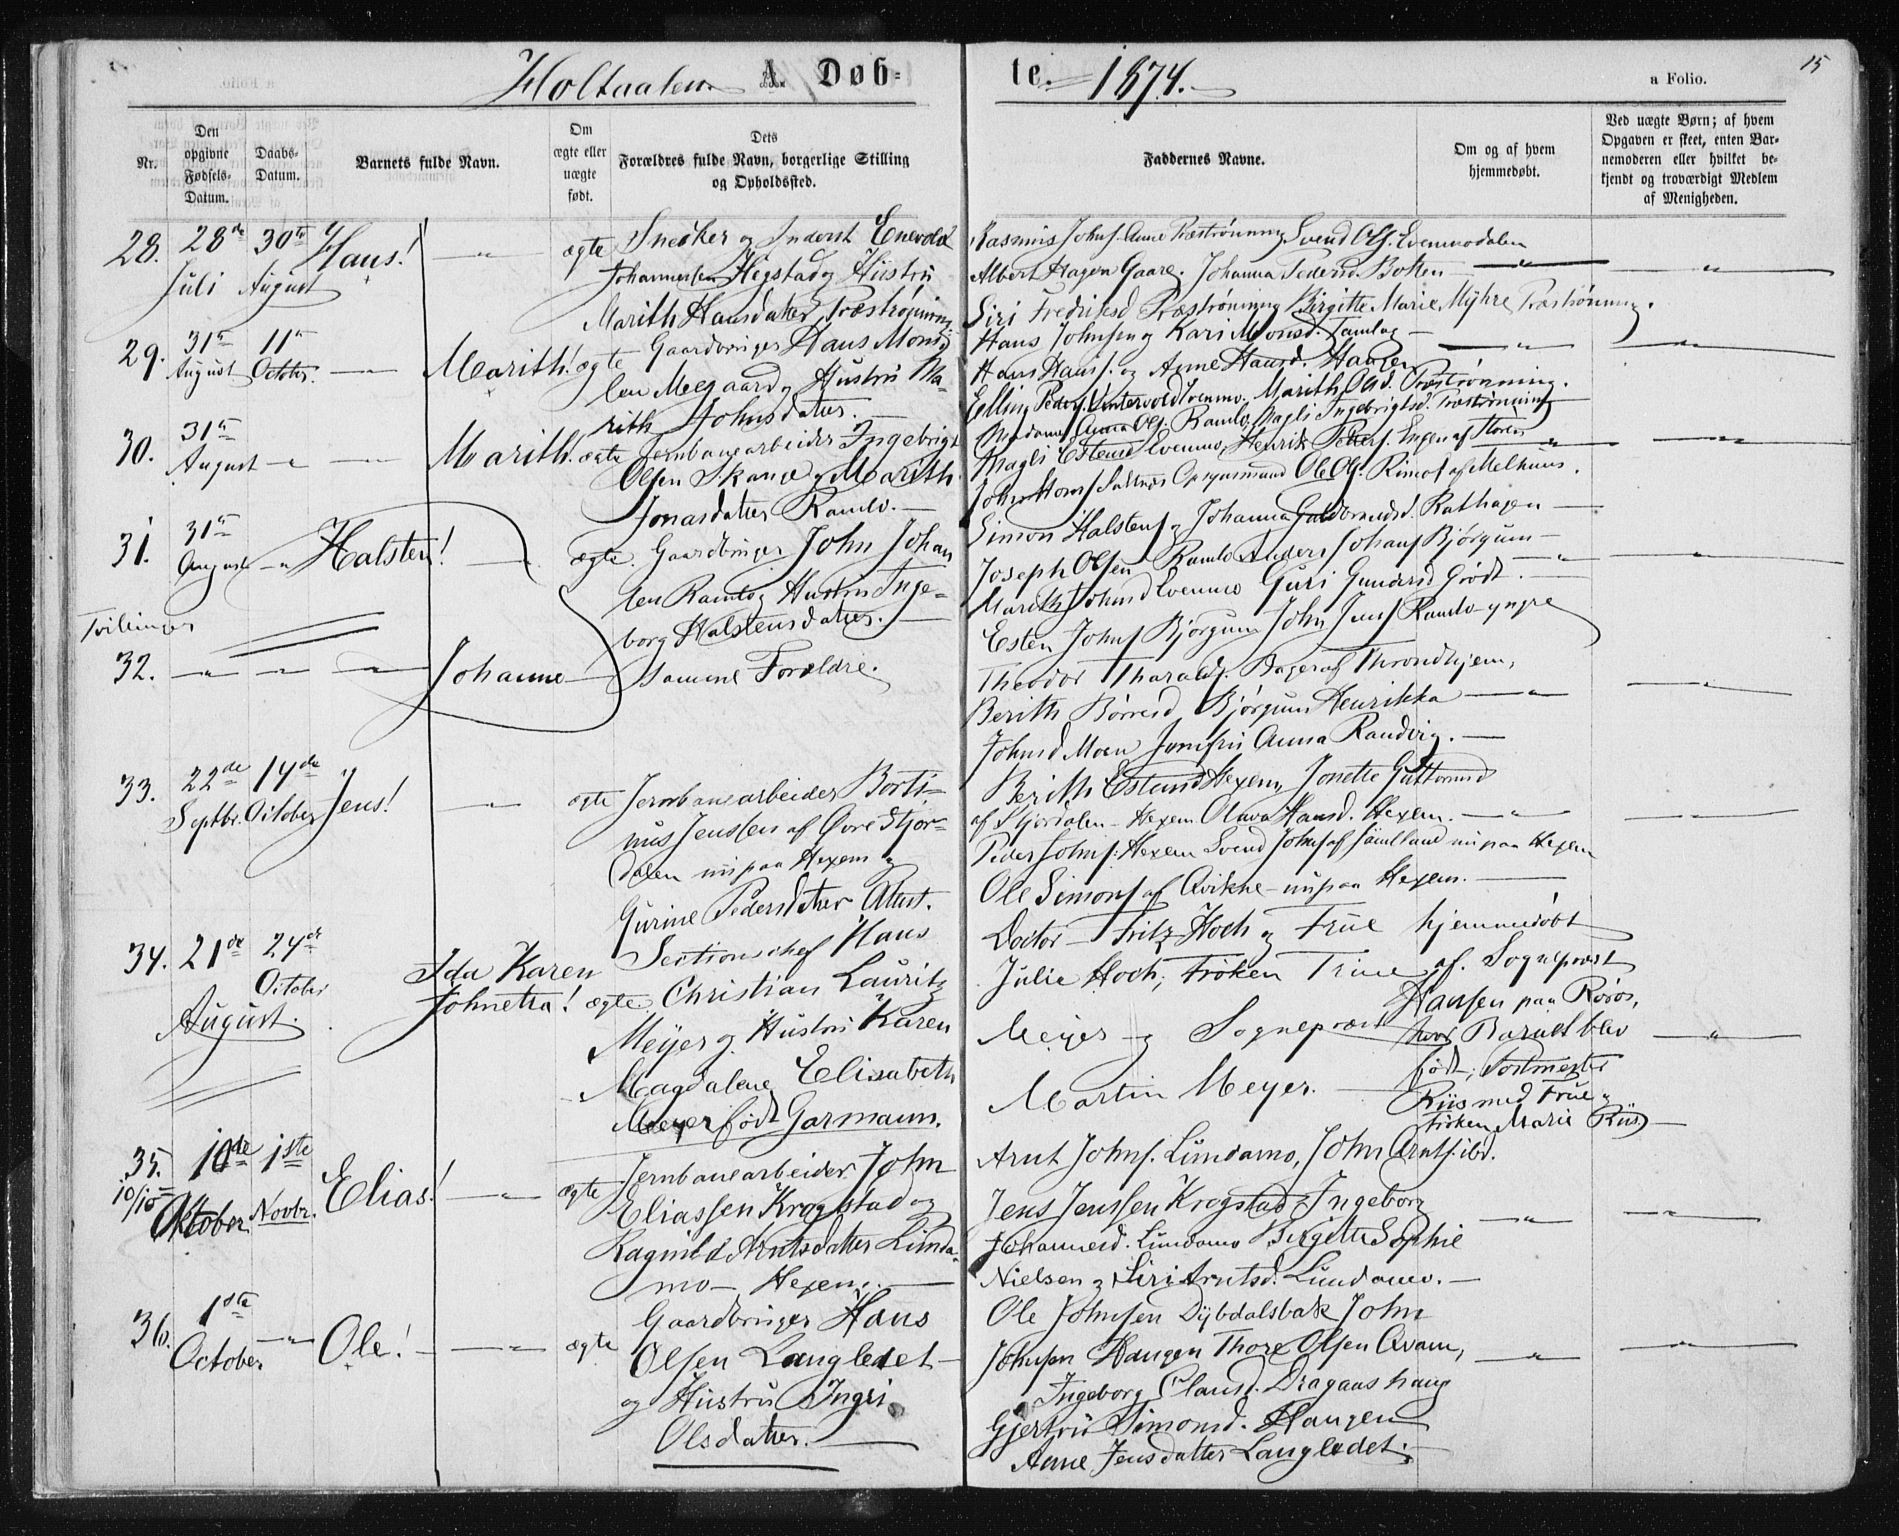 15
Holtaalen A. Døb-
te. 1874.
a Folio.
Nr.
Den
opgivne
Fødsels-
Datum.
Daabs-
Datum.
Barnets fulde Navn.
Om
ægte eller
uægte
født.
Dets
Forældres fulde Navn, borgerlige Stilling
og Opholdssted.
Faddernes Navne.
Om og af hvem
hjemmedøbt.
Ved uægte Børn; af hvem
Opgaven er skeet, enten Bar-
nemoderen eller hvilket be-
kjendt og troværdigt Medlem
af Menigheden.
28. 28de Juli 30te August Hans! ægte
Snedker og Inderst Enevold
Johannessen Hegstad og Hustru
Marith Hansdatter Præstrønning
Rasmus Johns. Anne Præstrønning Svend Ols. Evenmodalen
Albert Hagen Gaare. Johanna Pedersd. Botten
Siri Fredriksd Præstrønning Birgitte Marie Myhre Præstrønning.
29. 31te August 11te October. Marith! ægte
Gaardbruger Hans Mons-
sen Meegaard og Hustru Ma-
rith Johnsdatter.
Hans Johnsen og Kari Monsd. Tamlag
Hans Hans. og Anne Hansd. Haugen
Elling Peders. Evenmo. Marith Olsd. Præstrønning.
30. 31te August Marith. ægte
Jernbanearbeider Ingebrigt
Olsen Skance og Marith
Jonasdatter Ramlo.
Madame Anna Ols. Ramlo, Magli Ingebrigtsd. Præstrønning
Magli Estensd Evenmo, Henrik Peters. Engen af Støren
John Ole Ols. Rimol af Melhuus.
31. 31te August Halsten! ægte.
Gaardbruger John Johan
sen Ramlo og Hustru Inge-
borg Halstensdatter.
Simon Halstens og Johanna Guldbrandsd. Rathagen
Joseph Olsen Ramlo Anders Johans Bjørgum
Marith Johnsd Evenmo Guri Gundersd Grødt.
Tvillinger
32. Johanne samme Forældre.
Esten Johns Bjørgum John Jens Ramlo yngre
Theodor Tharalds. Bager af Throndhjem,
Berith Børresd Bjørgum Henrikka
Johnsd Moen Jomfru Anna Randvig.
33. 22de Septbr. 14de October Jens! ægte
Jernbanearbeider Borti-
nus Jenssen af Øvre Stjør-
dalen nu paa Hexem og
Gurine Pedersdatter Alust.
Berith Estensd Hexem, Jonette Guttormsd
af Stjørdalen - Hexem Olava Hansd. Hexem.
Peder Johns: Hexem Svend Johns af Jämtland nu paa Hexem
Ole Simons af Qvikne - nu paa Hexem.
34. 21de August. 24de October
Ida Karen
Johnetta! ægte.
Sectionschef Hans
Christian Lauritz
Meyer og Hustru Karen
Magdalene Elisabeth
Meyer født Garmann.
Doctor Fritz Hoch og Frue
Julie Hoch; Frøken Trine
Meyer og Sogneprest
Martin Meyer.
hjemmedøbt
af. Sogneprest
Hansen paa Røros,
hvor Barnet blev
født; Postmester
Riis med Frue og
Frøken Marie Riis
35. 10/10 10de Oktober. 1ste Novbr. Elias! ægte
Jernbanearbeider John
Eliassen Krogstad og
Ragnild Arntsdatter Lunda-
mo - Hexem.
Arnt Johns. Lundamo, John Arnts. ibd.
Jens Jenssen Krogstad og Ingeborg
Johannesd. Lundamo Birgitte Sophie
Nielsen og Siri Arntsd. Lundamo.
36. 1ste October. Ole! ægte
Gaardbruger Hans
Olsen Langledet
og Hustru Ingri
Olsdatter.
Ole Johnsen Dybdalsbak John
Johnsen Haugen Thore Olsen Qvam,
Ingeborg Clausd. Dragaashaug
Gjertrud Simonsd. Haugen
Anne Jensdatter Langledet.